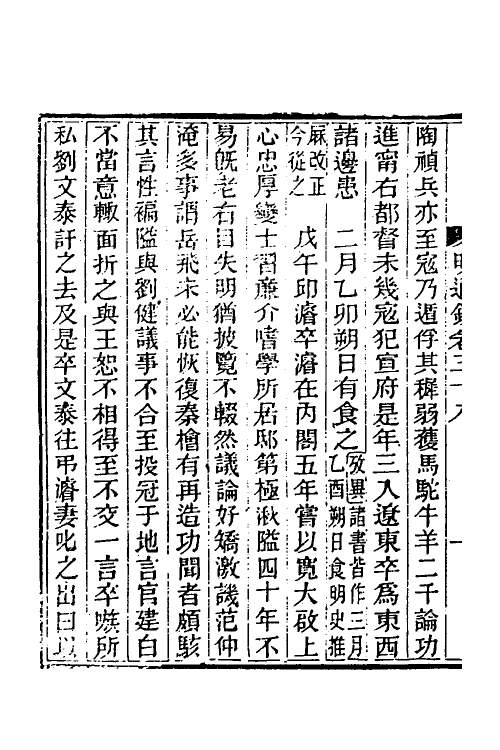 明通鑑卷三十八
陶禎兵亦至寇乃遁俘其穉弱獲馬駝牛羊二千論功
進甯右都督未幾寇犯宣府是年三入遼東卒爲東西
諸邊患　二月乙卯朔日有食之攷異諸書皆作三月乙酉朔日食明史推
厤改正今從之　戊午邱濬卒濬在內閣五年嘗以寬大啟上
心忠厚變士習廉介嗜學所居邸第極湫隘四十年不
易旣老右目失明猶披覽不輟然議論好矯激譏范仲
淹多事謂岳飛未必能恢復秦檜有再造功聞者頗駭
其言性褊隘與劉健議事不合至投冠于地言官建白
不當意輒面折之與王恕不相得至不交一言卒嗾所
私劉文泰訐之去及是卒文泰往弔濬妻叱之出曰以